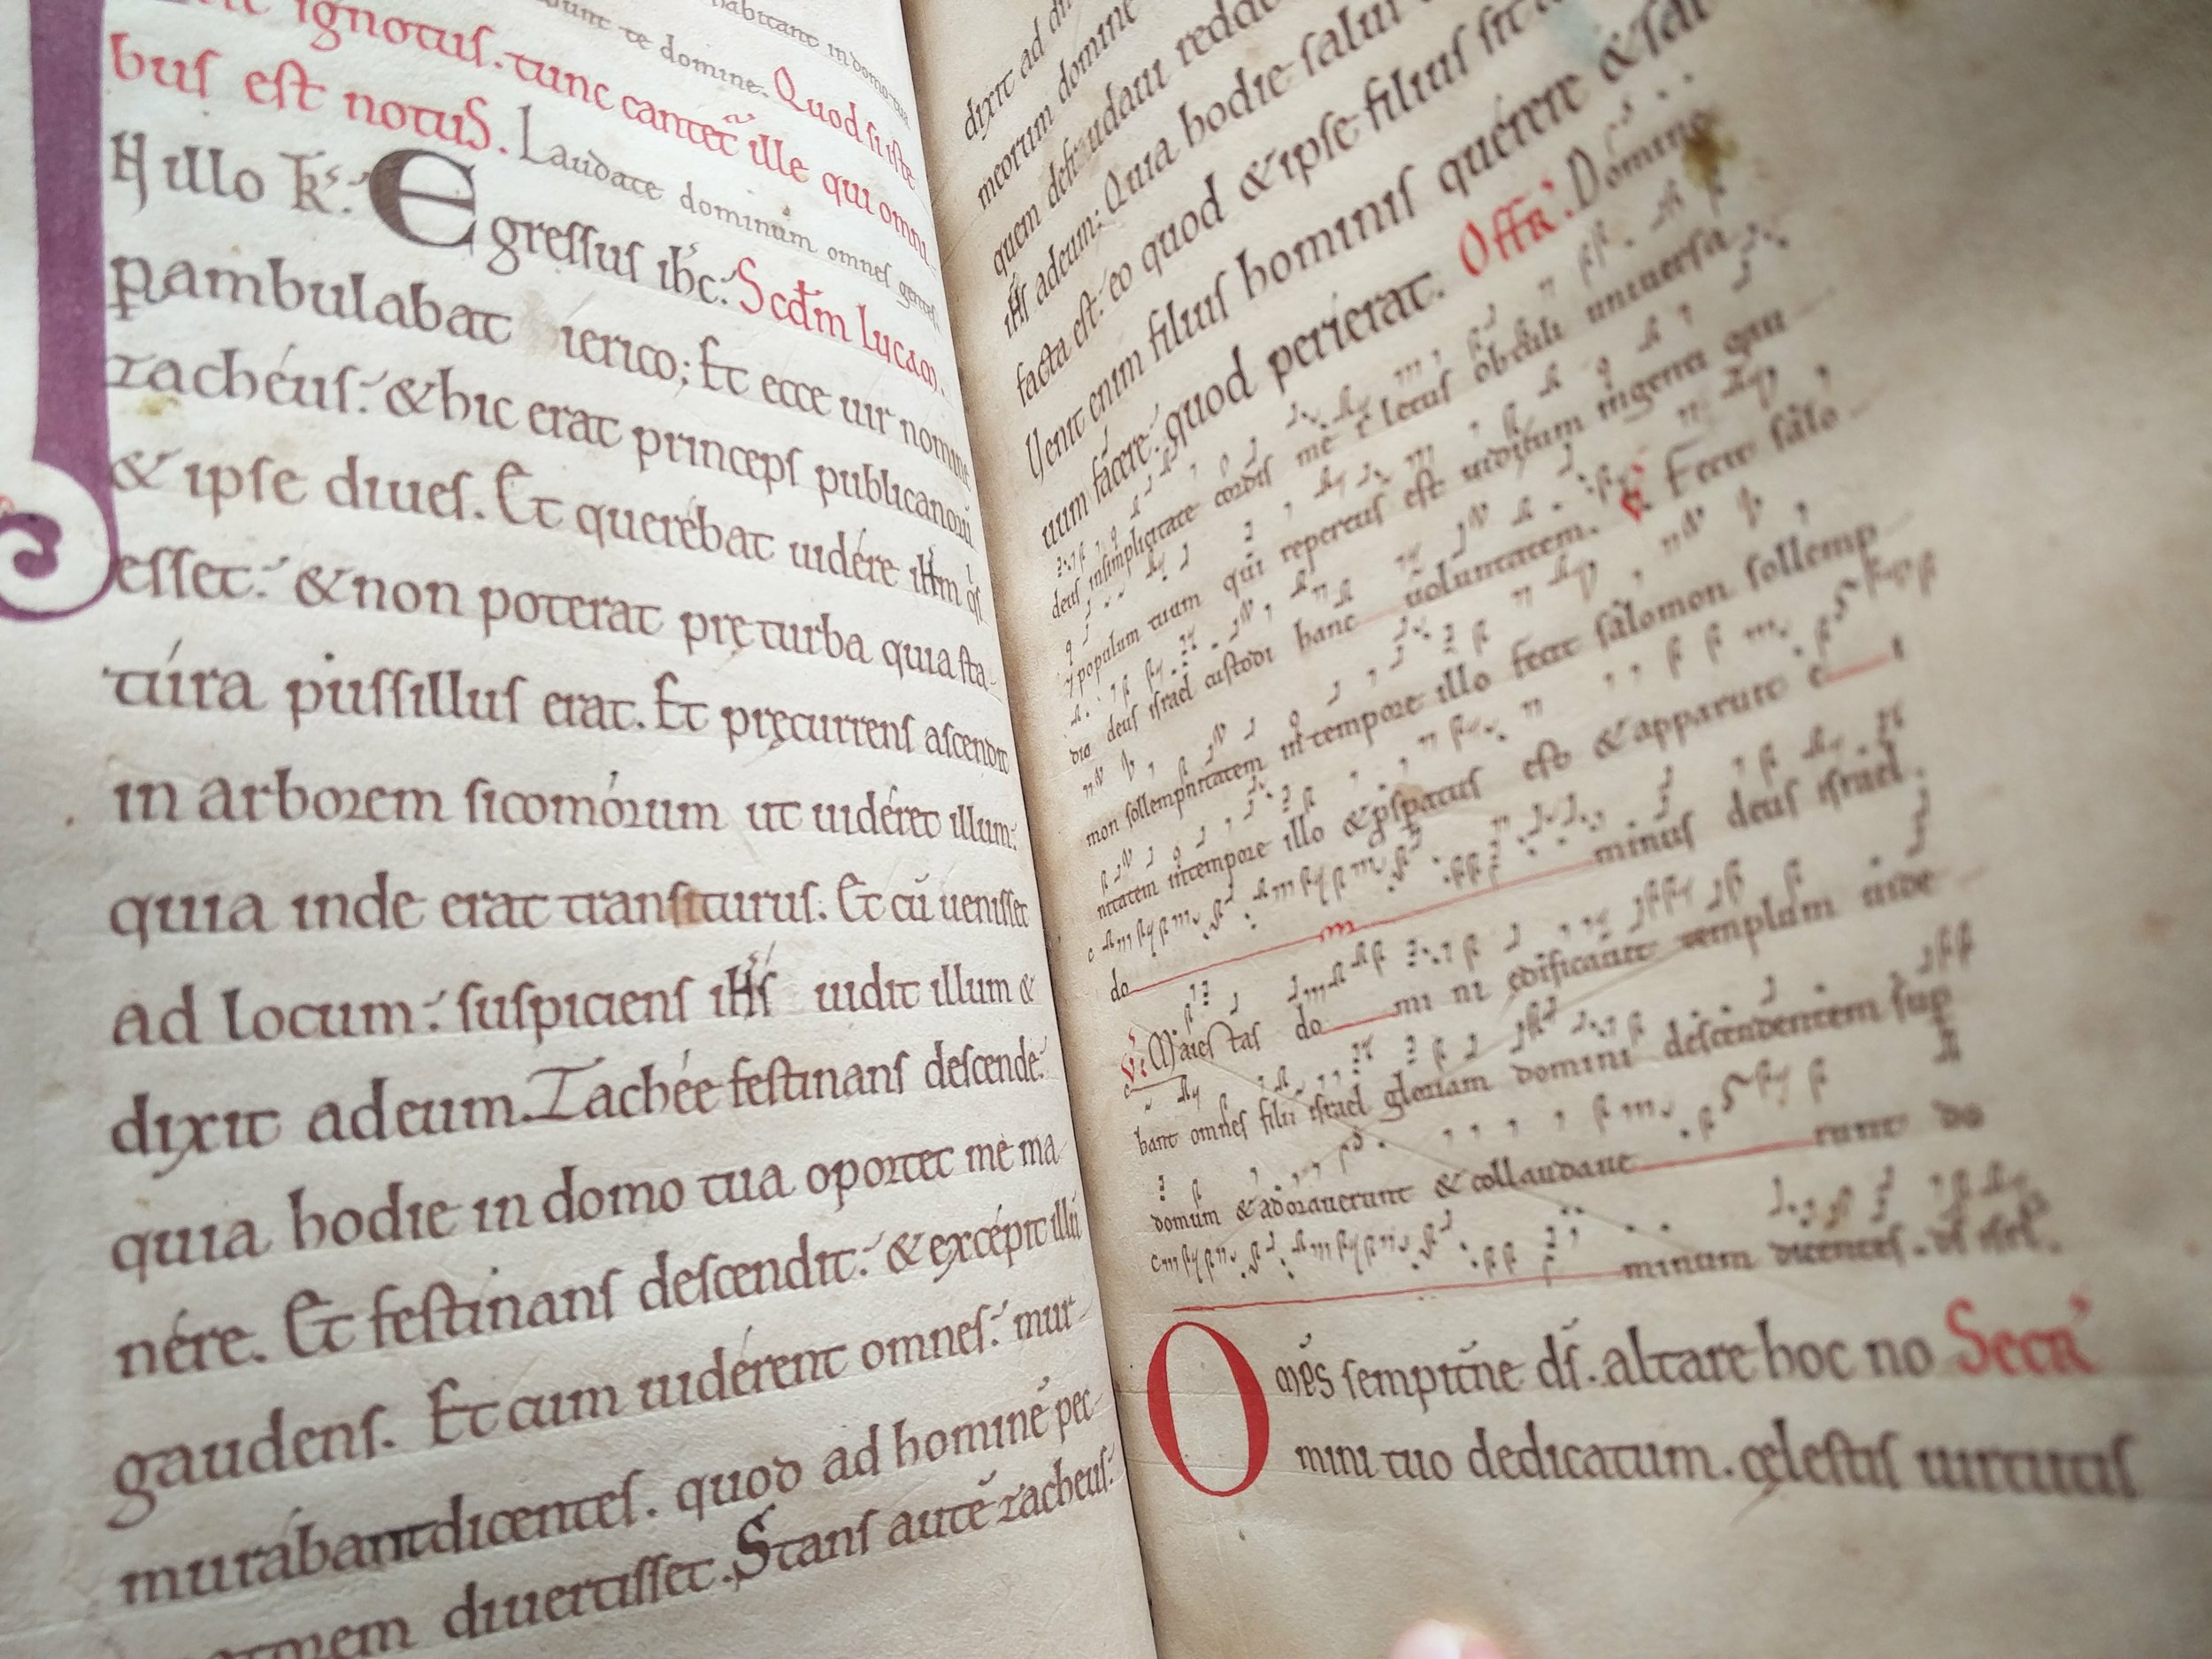 habitant in domo tua
te domine. Quod si iste
ignotuſ. tunc cantet ille qui omni
buſ eſt notuS. Laudate dominum omneſ genteſ
N illo t̄ſ: Egreſſuſ ih̄c: Scd̄m lucam.
pambulabat ierico; Et ecce uir nomine
zachéuſ: & hic erat princepſ publicanoꝝ
& ipſe diueſ. Et querébat uidére iHm qſ
eſſet: & non poterat pręturba quia ſta-
túra puſſilluſ erat. Et pręcurrenſ aſcendit
in arborem ſicomórum ut uidéret illum:
quia inde erat tranſituruſ. Et cū ueniſſet
ad locum: ſuſpicienſ iHſ uidit illum &
dixit adeum. Zachée feſtinanſ deſcende:
quia hodie in domo tua oportet me ma-
nére. Et feſtinanſ deſcendit: & excépit illū
gaudenſ. Et cum uidérent omneſ: mur-
murábant dicenteſ. quod ad hominē pec-
diuertiſſet. Stanſ autē zacheuſ:
dixit ad
meorum domine
quem defraudaui redd
iHſ adeum: Quia hodie ſaluſ
facta eſt: eo quod & ipſe filiuſ ſit
Uenit enim filiuſ hominiſ quérere & ſal
uum fácere: quod períerat. Offr̄. Domine
deuſ inſimplicitate cordiſ mei letuſ obtuli uniuerſa
& populum tuum qui repertuſ eſt uidi cum ingenti gau
dio deuſ iſrael cuſtodi hanc uoluntatem. V. Fecit ſálo
mon ſollempnitatem in tempore illo fecit ſálomon ſollemp
nitatem in tempore illo & pſpatuſ eſt & apparuit e i
do m minuſ deuſ iſrael.
V. Maieſtaſ do mi ni ędificauit templum uide
bant omneſ filii iſrael gloriam domini deſcendentem ſup
domum & adorauerunt & collaudaue runt do
minum dicenteſ. dſ iſrl.
Omp̄s ſempitn̄e dſ̄. altare hoc no Secr̄
mini tuo dedicatum. cęleſtiſ uirtutiſ